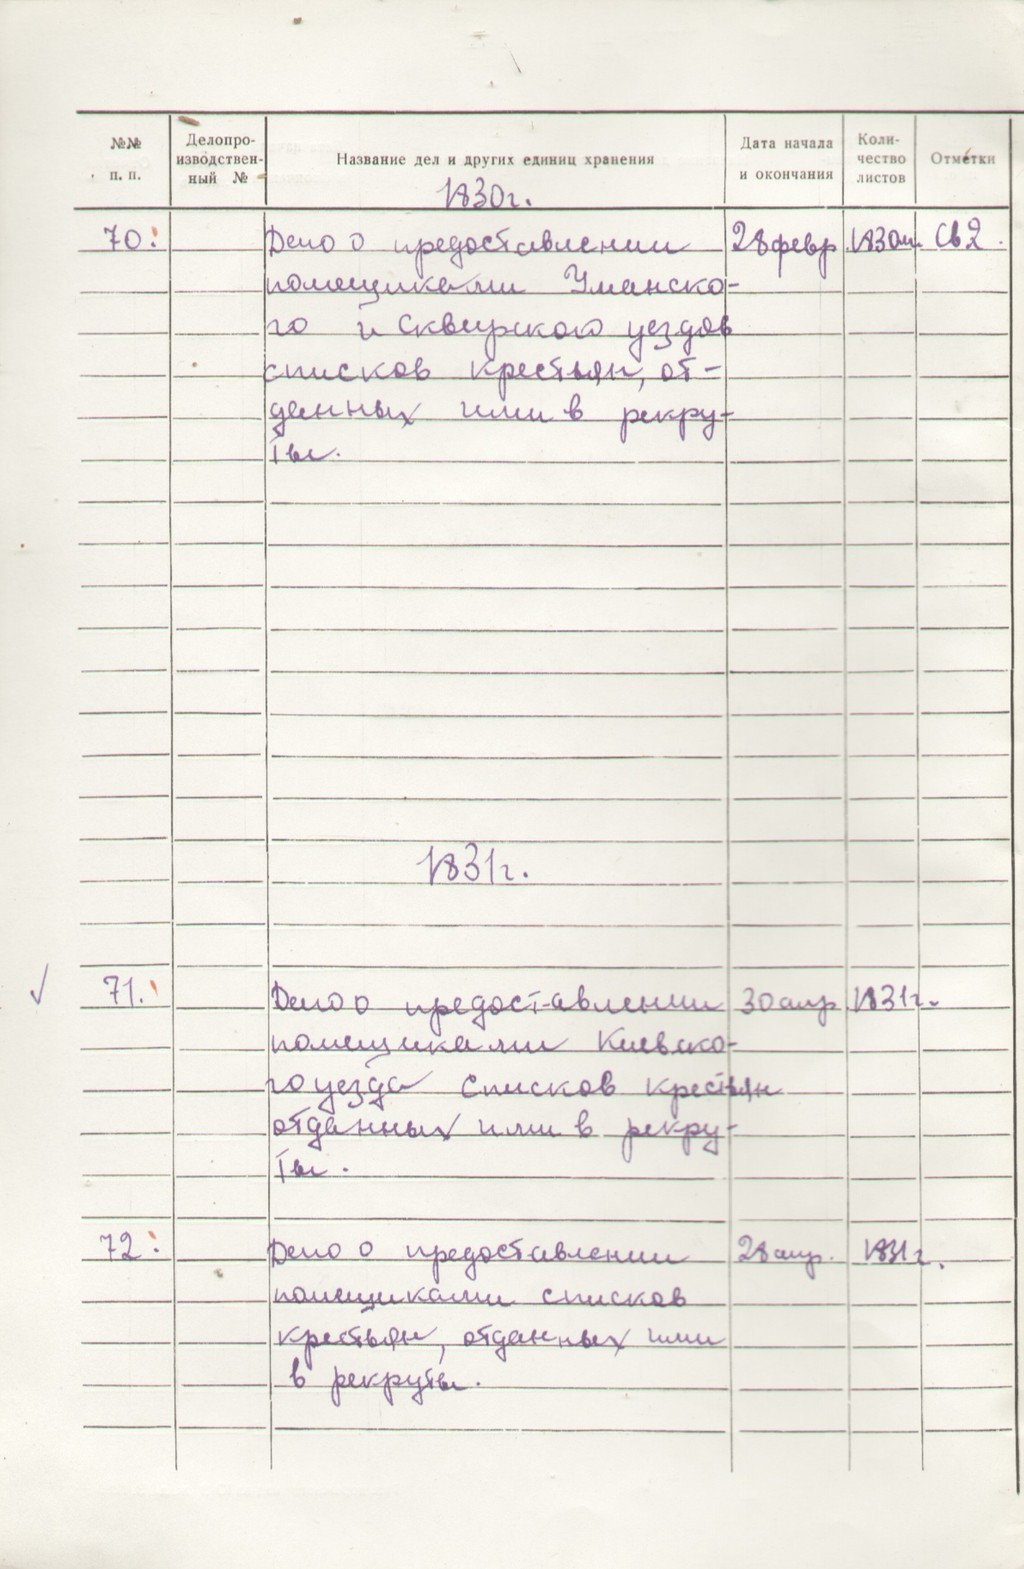 №№ п. п.
Делопро-изводствен-ный №
Название дел и других единиц хранения
Дата начала и окончания
Коли-чество листов
Отметки
1830г.
70. Дело о предоставлении 28 февр. 1830 Св 2.
помещиками Уманско-
го и Сквирского уездов
списков крестьян, от-
данных ими в рекру-
ты.
1831г.
71. Дело о предоставлении 30 апр 1831г.
помещиками Киевско-
го уезда списков крестьян
отданных ими в рекру-
ты.
72. Дело о предоставлении 28 апр. 1831г.
помещиками списков
крестьян, отданных ими
в рекруты.